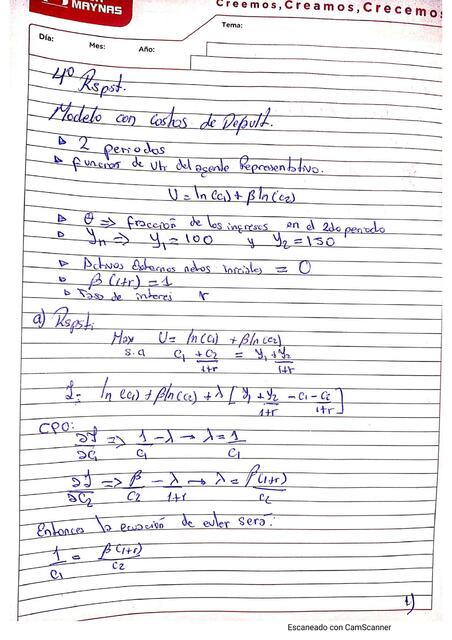 MAYNAS
Creemos, Creamos, Crecemos
Tema:
Día:
Mes:
Año:
4º Rspst.
Modelo con Costos de Default.
▷ 2 periodos
▷ función de Utr del agente Representativo.
U = ln(c1) + β ln(c2)
▷ θ => fracción de los ingresos en el 2do periodo
▷ Yn => Y1 = 100 y Y2 = 150
▷ Activos Externos netos iniciales = 0
▷ β(1+r) = 1
▷ Tasa de interes r
a) Rspst:
Max U = ln(c1) + β ln(c2)
s.a c1 + c2/1+r = Y1 + Y2/1+r
L = ln(c1) + β ln(c2) + λ [Y1 + Y2/1+r - c1 - c2/1+r]
CPO:
∂L/∂C1 => 1/c1 - λ → λ = 1/c1
∂L/∂C2 => β/c2 - λ/1+r → λ = β(1+r)/c2
Entonces la ecuación de euler será:
1/c1 = β(1+r)/c2
1)
Escaneado con CamScanner